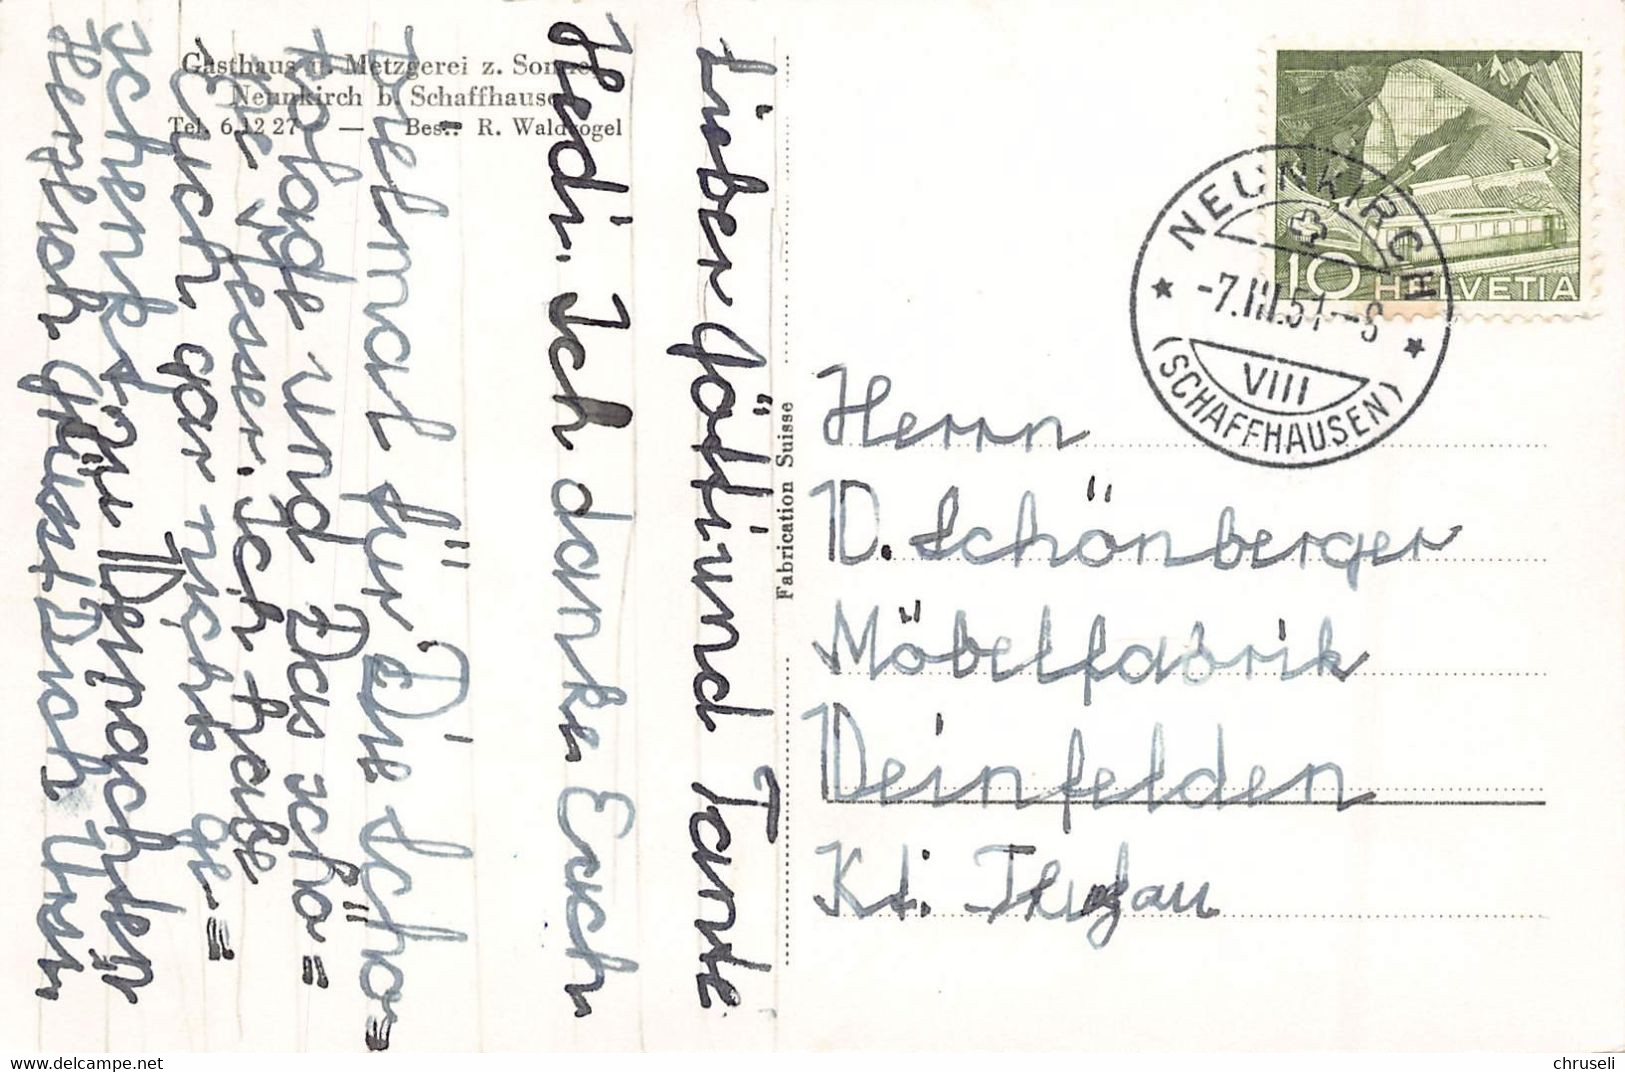 Gasthaus u. Metzgerei z. Sonne
Neunkirch b. Schaffhausen
Tel. 6 12 27 — Bes.: R. Waldvogel
Lieber Götti und Tante
Hedi. Ich danke Euch
vielmal für Die Scho=
kolade und Das schö=
ne Messer. Ich habe
Euch gar nichts ge=
schenkt zu Dernachten
Herzlich grüsst Dich Urs
Fabrication Suisse
NEUNKIRCH
-7.III.51.-8
VIII
(SCHAFFHAUSEN)
10 HELVETIA
Herrn
D. Schönberger
Möbelfabrik
Weinfelden
Kt. Thurgau
chruseli